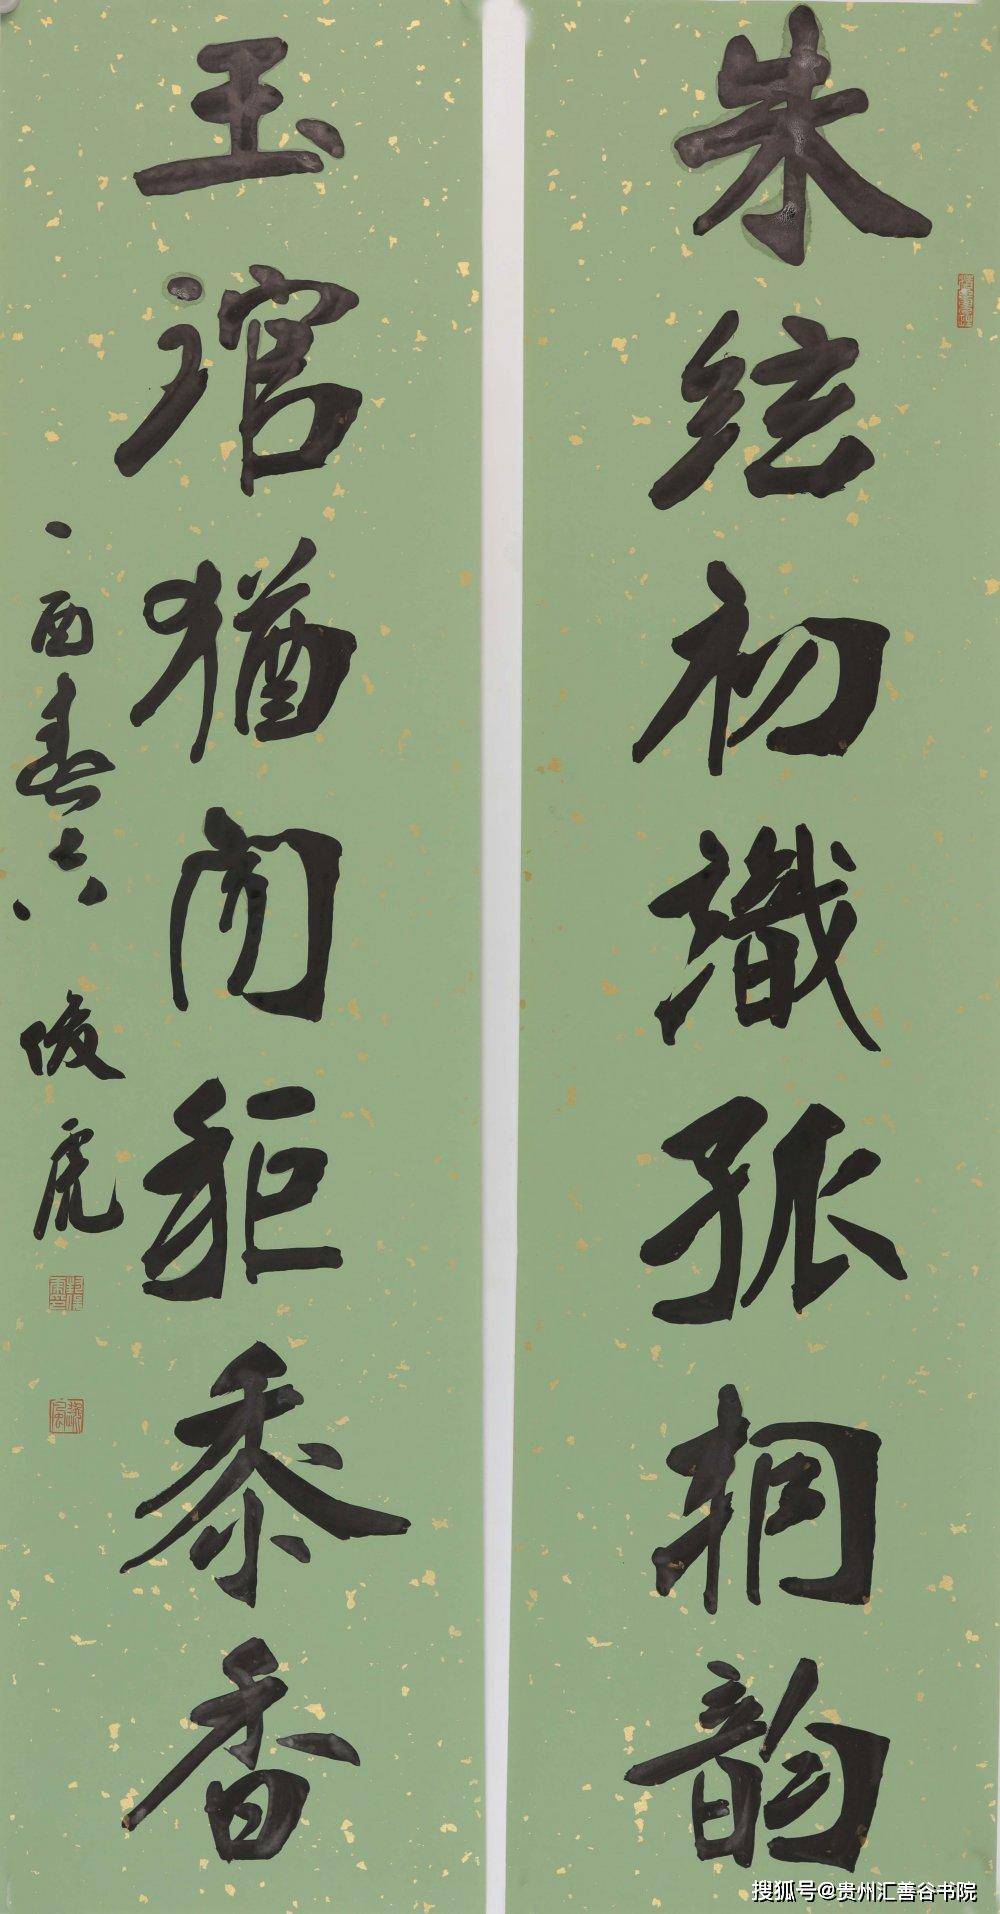 朱絃初識孤桐韵
玉琯猶闻秬黍香
酉春六 俊虎
搜狐号@贵州汇善谷书院